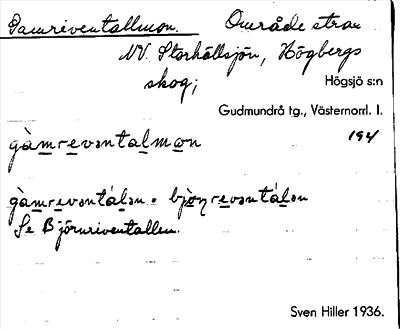 Gamriventallmon. Område strax
NV. Storhällsjön, Högbergs
skog; Högsjö s:n
Gudmundrå tg., Västernorrl. l.
gàmrevəntalmən 194
gàmrevəntálən. bjòŋrevəntálən
Se Björnriventallen.
Sven Hiller 1936.